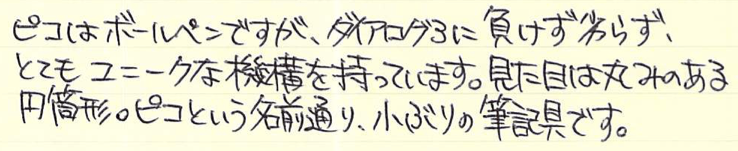 ピコはボールペンですが、ダイアログ3に負けず劣らず、
とてもユニークな機構を持っています。見た目は丸みのある
円筒形。ピコという名前通り、小ぶりの筆記具です。